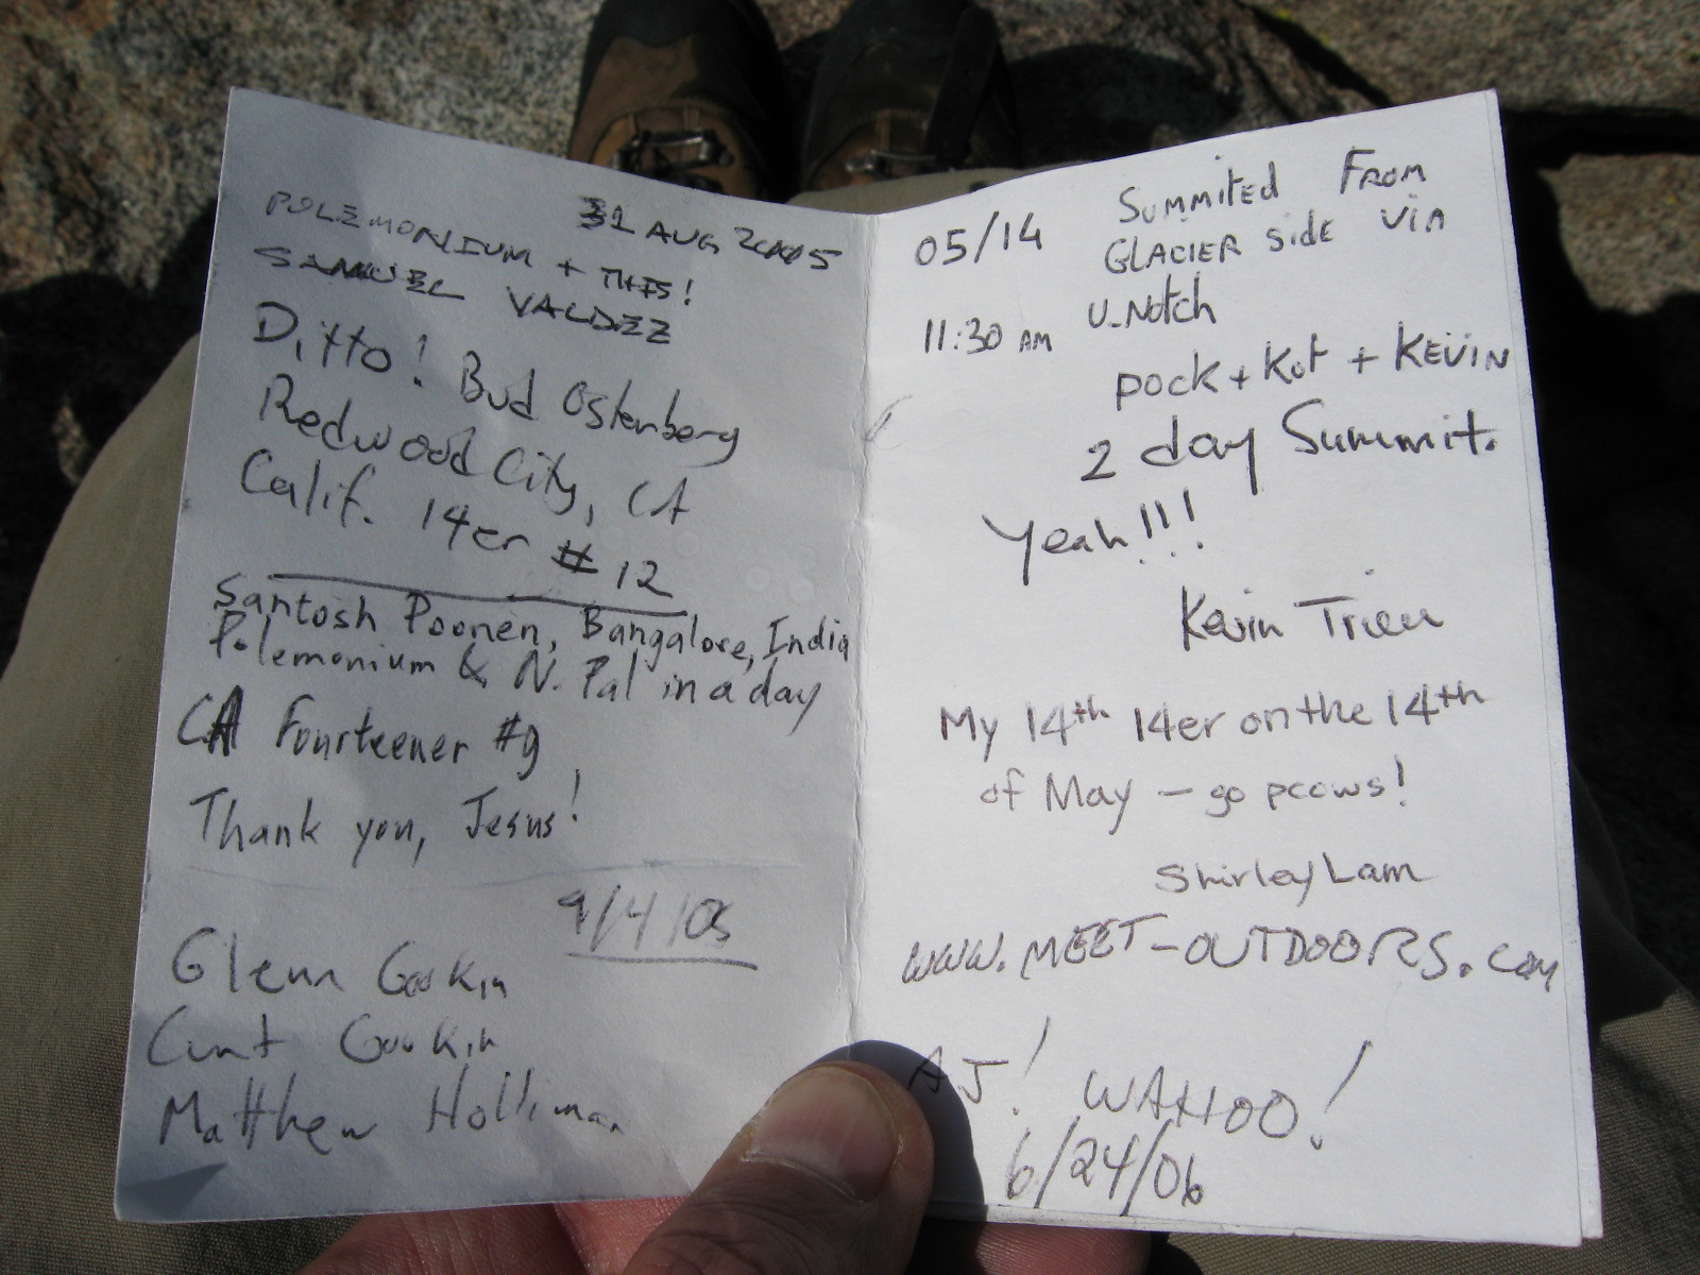 31 AUG 2005
POLEMONIUM + THIS!
SAMUEL VALDEZ
Ditto! Bud Ostenberg
Redwood City, CA
Calif. 14er # 12
Santosh Poonen, Bangalore, India
Polemonium & N. Pal in a day
CA Fourteener #9
Thank you, Jesus!
9/4/05
Glenn Gookin
Curt Gookin
Matthew Holliman
05/14 Summited From
GLACIER side via
11:30 AM U-Notch
pock + Kot + KEVIN
2 day Summit.
Yeah!!!
Kevin Trieu
My 14th 14er on the 14th
of May – go pcows!
Shirley Lam
WWW.MEET-OUTDOORS.com
AJ! WAHOO!
6/24/06